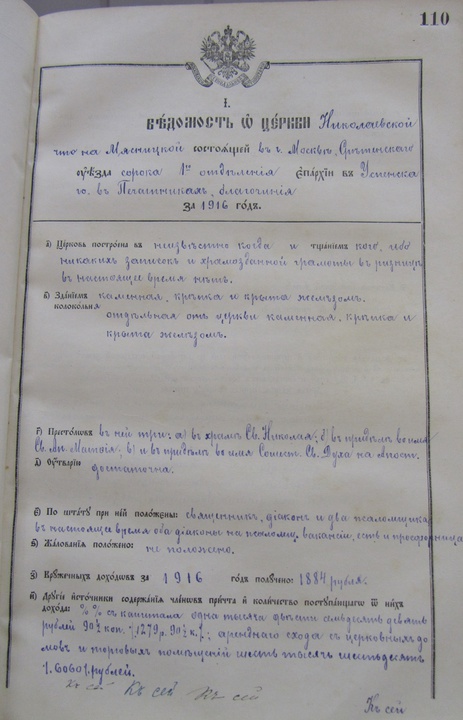 110
I.
ВѢДОМОСТЬ Ѿ ЦЕРКВИ Николаевской
что на Мясницкой состоящей въ г. Москвѣ, Срѣтенскаго
уѣзда сорока 1го отдѣленія епархіи въ Успенска
го, въ Печатникахъ, благочинія
за 1916 годъ.
а) Церковь построена въ неизвѣстно когда и тщаніемъ кого, ибо
никакихъ записокъ и храмозданной грамоты въ ризницѣ
въ настоящее время нѣтъ.
в) Зданіемъ каменная, крѣпка и крыта желѣзомъ.
колокольня
отдѣльная отъ церкви каменная, крѣпка и
крыта желѣзомъ.
г) Престоловъ въ ней три: а) въ храмѣ Св. Николая; б) въ придѣлѣ во имя
Св. Ап. Матѳія; в) и въ придѣлѣ во имя Сошест. Св. Духа на Апост.
д) Утварію достаточна.
е) По штату при ней положены: священникъ, діаконъ и два псаломщика,
въ настоящее время оба діаконы на псаломщ. вакансіи, есть и просфорница
ѕ) Жалованія положено: не положено.
з) Кружечныхъ доходовъ за 1916 годъ получено: 1884 рубля.
и) Другіе источники содержанія членовъ причта и количество поступающаго ѿ нихъ
дохода: % % съ капитала одна тысяча двѣсти семьдесятъ девять
рублей 90½ коп. /1279 р. 90½ к./; арендного схода съ церковныхъ до
мовъ и торговыхъ помѣщеній шесть тысячъ шестьдесятъ
/6060/ рублей.
Къ сей Къ сей Къ сей
Къ сей